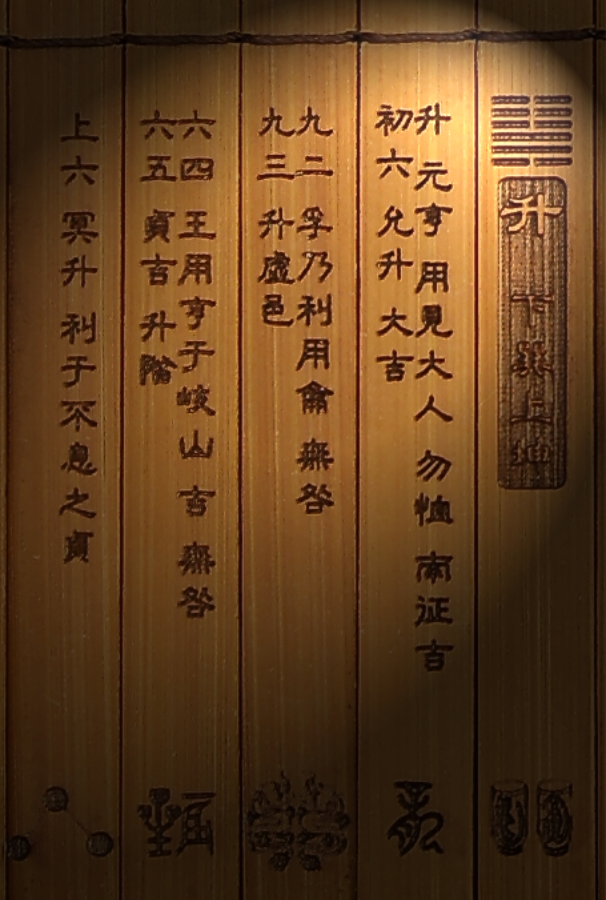 升 下巽上坤
升 元亨 用見大人 勿恤 南征吉
初六 允升 大吉
九二 孚乃利用禴 無咎
九三 升虛邑
六四 王用亨于岐山 吉 無咎
六五 貞吉 升階
上六 冥升 利于不息之貞